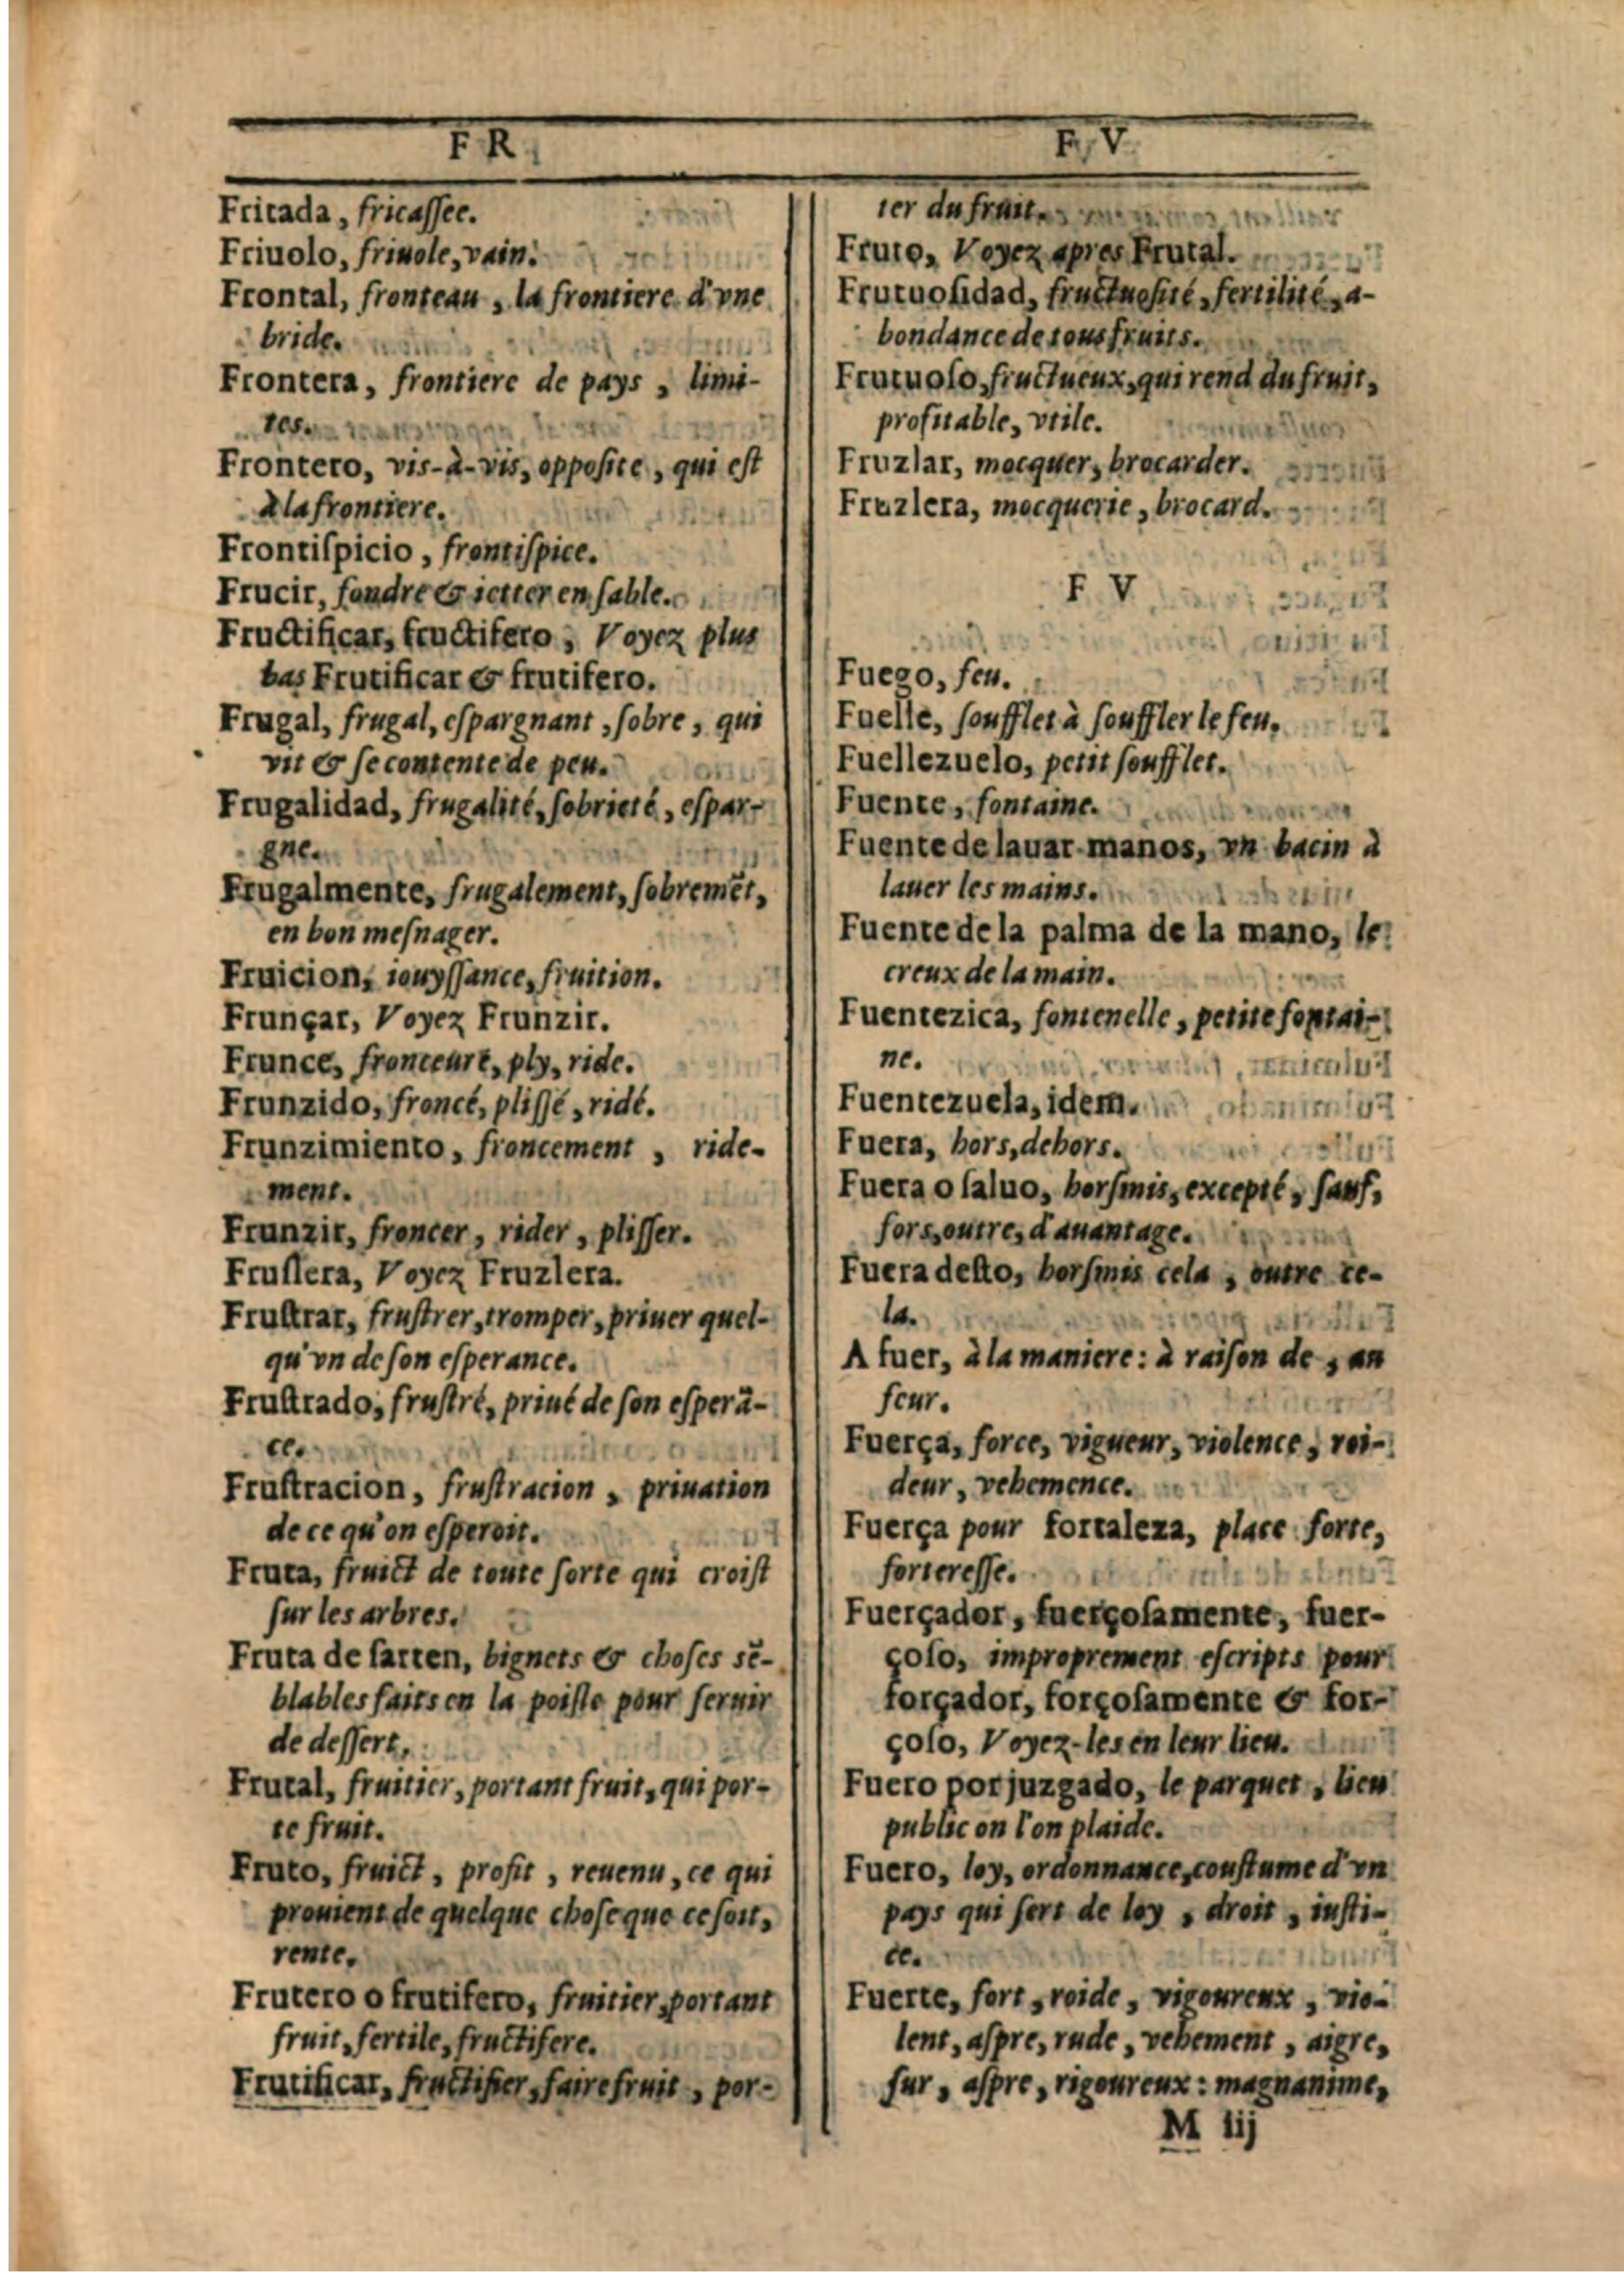 F R
Fritada, fricaſſee.
Friuolo, friuole, vain.
Frontal, fronteau, la frontiere d'vne
bride.
Frontera, frontiere de pays, limi-
tes.
Frontero, vis-à-vis, opposite, qui est
à la frontiere.
Frontiſpicio, frontiſpice.
Frucir, fondre & ietter en ſable.
Fructificar, fructifero, Voyez plus
bas Frutificar & frutifero.
Frugal, frugal, eſpargnant, ſobre, qui
vit & ſe contente de peu.
Frugalidad, frugalité, ſobrieté, eſpar-
gne.
Frugalmente, frugalement, ſobremẽt,
en bon meſnager.
Fruicion, iouyſſance, fruition.
Frunçar, Voyez Frunzir.
Frunce, fronceure, ply, ride.
Frunzido, froncé, pliſſé, ridé.
Frunzimiento, froncement, ride-
ment.
Frunzir, froncer, rider, pliſſer.
Fruſlera, Voyez Fruzlera.
Fruſtrar, fruſtrer, tromper, priuer quel-
qu'vn de ſon eſperance.
Fruſtrado, fruſtré, priué de ſon eſperã-
ce.
Fruſtracion, fruſtracion, priuation
de ce qu'on eſperoit.
Fruta, fruict de toute ſorte qui croiſt
ſur les arbres.
Fruta de ſarten, bignets & choſes sẽ-
blables faits en la poiſle pour ſeruir
de deſſert.
Frutal, fruitier, portant fruit, qui por-
te fruit.
Fruto, fruict, profit, reuenu, ce qui
prouient de quelque choſe que ce ſoit,
rente.
Frutero o frutifero, fruitier, portant
fruit, fertile, fructifere.
Frutificar, fructifier, faire fruit, por-
F V
ter du fruit.
Fruto, Voyez apres Frutal.
Frutuoſidad, fructuoſité, fertilité, a-
bondance de tous fruits.
Frutuoſo, fructueux, qui rend du fruit,
profitable, vtile.
Fruzlar, mocquer, brocarder.
Fruzlera, mocquerie, brocard.
F V
Fuego, feu.
Fuelle, ſoufflet à ſouffler le feu.
Fuellezuelo, petit ſoufflet.
Fuente, fontaine.
Fuente de lauar manos, vn bacin à
lauer les mains.
Fuente de la palma de la mano, le
creux de la main.
Fuentezica, fontenelle, petite fontai-
ne.
Fuentezuela, idem.
Fuera, hors, dehors.
Fuera o ſaluo, horſmis, excepté, ſauf,
fors, outre, d'auantage.
Fuera deſto, horſmis cela, outre ce-
la.
A fuer, à la maniere: à raiſon de, au
feur.
Fuerça, force, vigueur, violence, roi-
deur, vehemence.
Fuerça pour fortaleza, place forte,
forterеſſe.
Fuerçador, fuerçoſamente, fuer-
çoſo, improprement eſcripts pour
forçador, forçoſamente & for-
çoſo, Voyez-les en leur lieu.
Fuero por juzgado, le parquet, lieu
public ou l'on plaide.
Fuero, loy, ordonnance, couſtume d'vn
pays qui ſert de loy, droit, iuſti-
ce.
Fuerte, fort, roide, vigoureux, vio-
lent, aſpre, rude, vehement, aigre,
ſur, aſpre, rigoureux: magnanime,
M iij